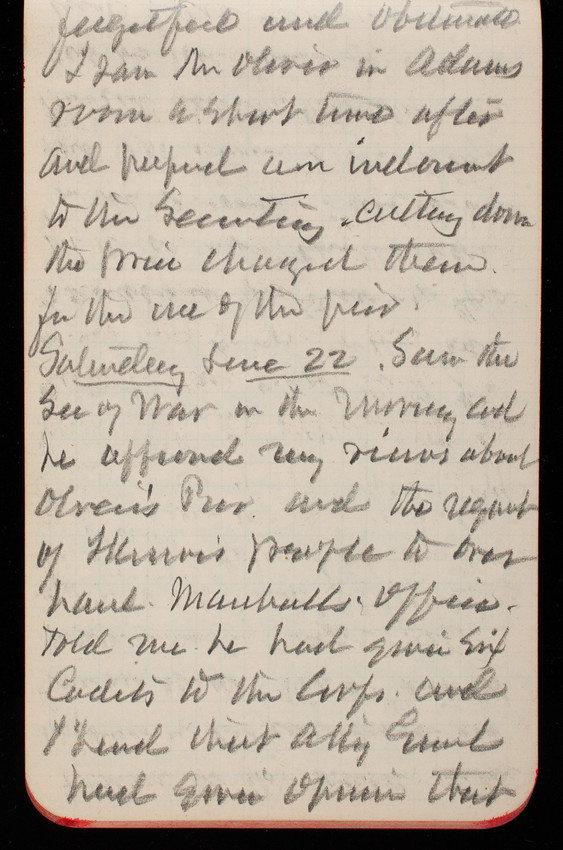 and obstinate
I saw Mr Oliver in Adams
room a short time after
and prepared an indorsmt
to the Secretary cutting down
the price charged them.
for the use of the pier.
Saturday June 22. Saw the
Sec of War in the morning and
he approved my views about
Oliver's Pier. and the request
of Illinois people to over
haul Marshalls office.
Told me he had given six
Cadets to the Corps. and
I said that Atty Genl
had given opinion that